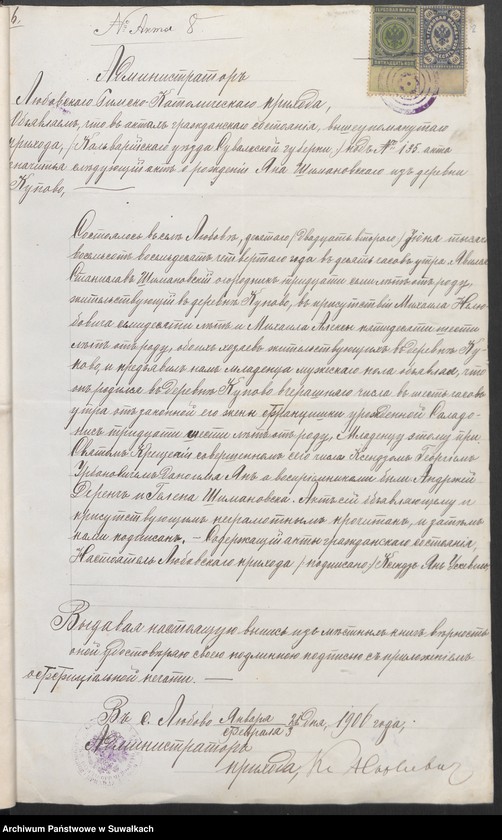 6.
№ Акта 8
Администраторъ
Любовскаго Римско-Католическаго прихода,
Объявляетъ, что въ актахъ гражданскаго состоянія, вышеупомянутаго
прихода, /Кальварійскаго уѣзда Сувалкской губерніи/ подъ № 135. акта
значится слѣдующій актъ о рожденіи Яна Шимановскаго изъ деревни
Купово,
Состоялось въ селѣ Любовѣ, десятого /двадцать второго/ Іюня тысяча
восемьсотъ восемьдесятъ четвертаго года въ десять часовъ утра. Явился
Станиславъ Шимановскій огородникъ тридцати семи лѣтъ отъ роду,
жительствующій въ деревнѣ Купово, въ присутствіи Михаила
семидесяти лѣтъ и Михаила пятидесяти шести
лѣтъ отъ роду, обоихъ хозяевъ жительствующихъ въ деревнѣ Ку-
пово, и предъявилъ намъ младенца мужескаго пола объявляя, что
онъ родился въ деревнѣ Купово вчерашняго числа въ шесть часовъ
утра отъ законной его жены Францишки урожденной Саладо-
нисъ тридцати шести лѣтъ отъ роду, Младенцу этому при
Святомъ Крещеніи совершенномъ сего числа Ксендзомъ Георгіемъ
Урбановичемъ дано имя Янъ а воспріемниками были Андржей
Беренъ и Галена Шимановска. Актъ сей объявляющему и
присутствующимъ неграмотнымъ прочитанъ, и затѣмъ
нами подписанъ. — Содержащій акты гражданскаго состоянія,
Настоятель Любовскаго прихода /подписано/ Ксендзъ Янъ
Выдавая настоящую выпись изъ мѣстныхъ книгъ вѣрность
оной удостовѣряю своею подлинною подписью съ приложеніемъ
оффиціальной печати. —
Въ с. Любово Января 21/Февраля 3 дня, 1906 года,
Администраторъ
прихода, Кс.
Archiwum Państwowe w Suwałkach